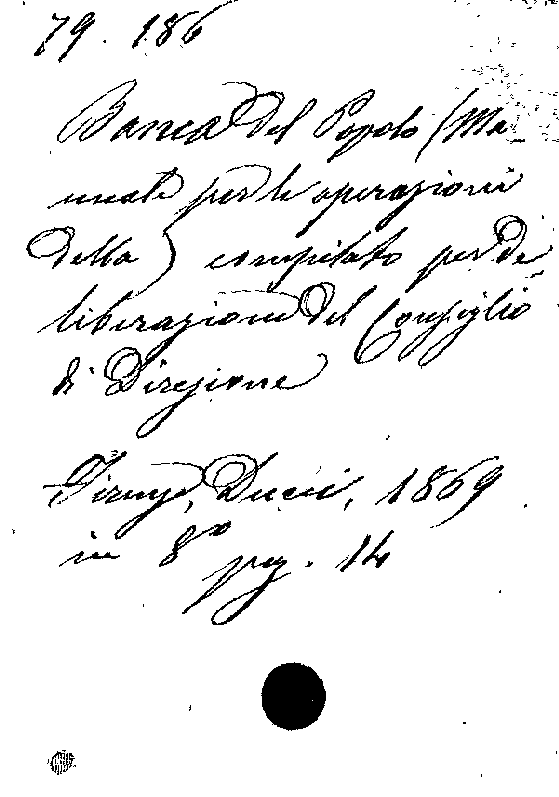 79. 186
Banca del Popolo (Ma-
nuale per le operazioni
della) compilato per de
liberazione del Consiglio
di Direzione
Firenze, Ducci, 1869
in 8º pag. 14